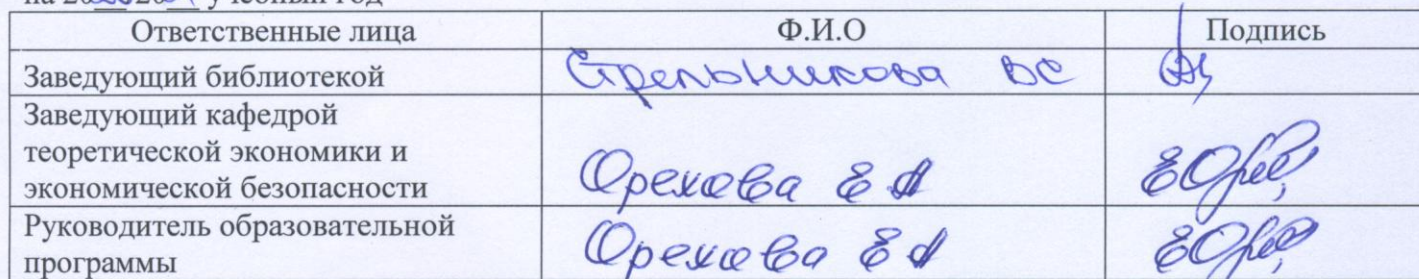 Ответственные лица Ф.И.О Подпись
Заведующий библиотекой Стрельникова ВС
Заведующий кафедрой
теоретической экономики и
экономической безопасности Орехова Е А
Руководитель образовательной
программы Орехова Е А